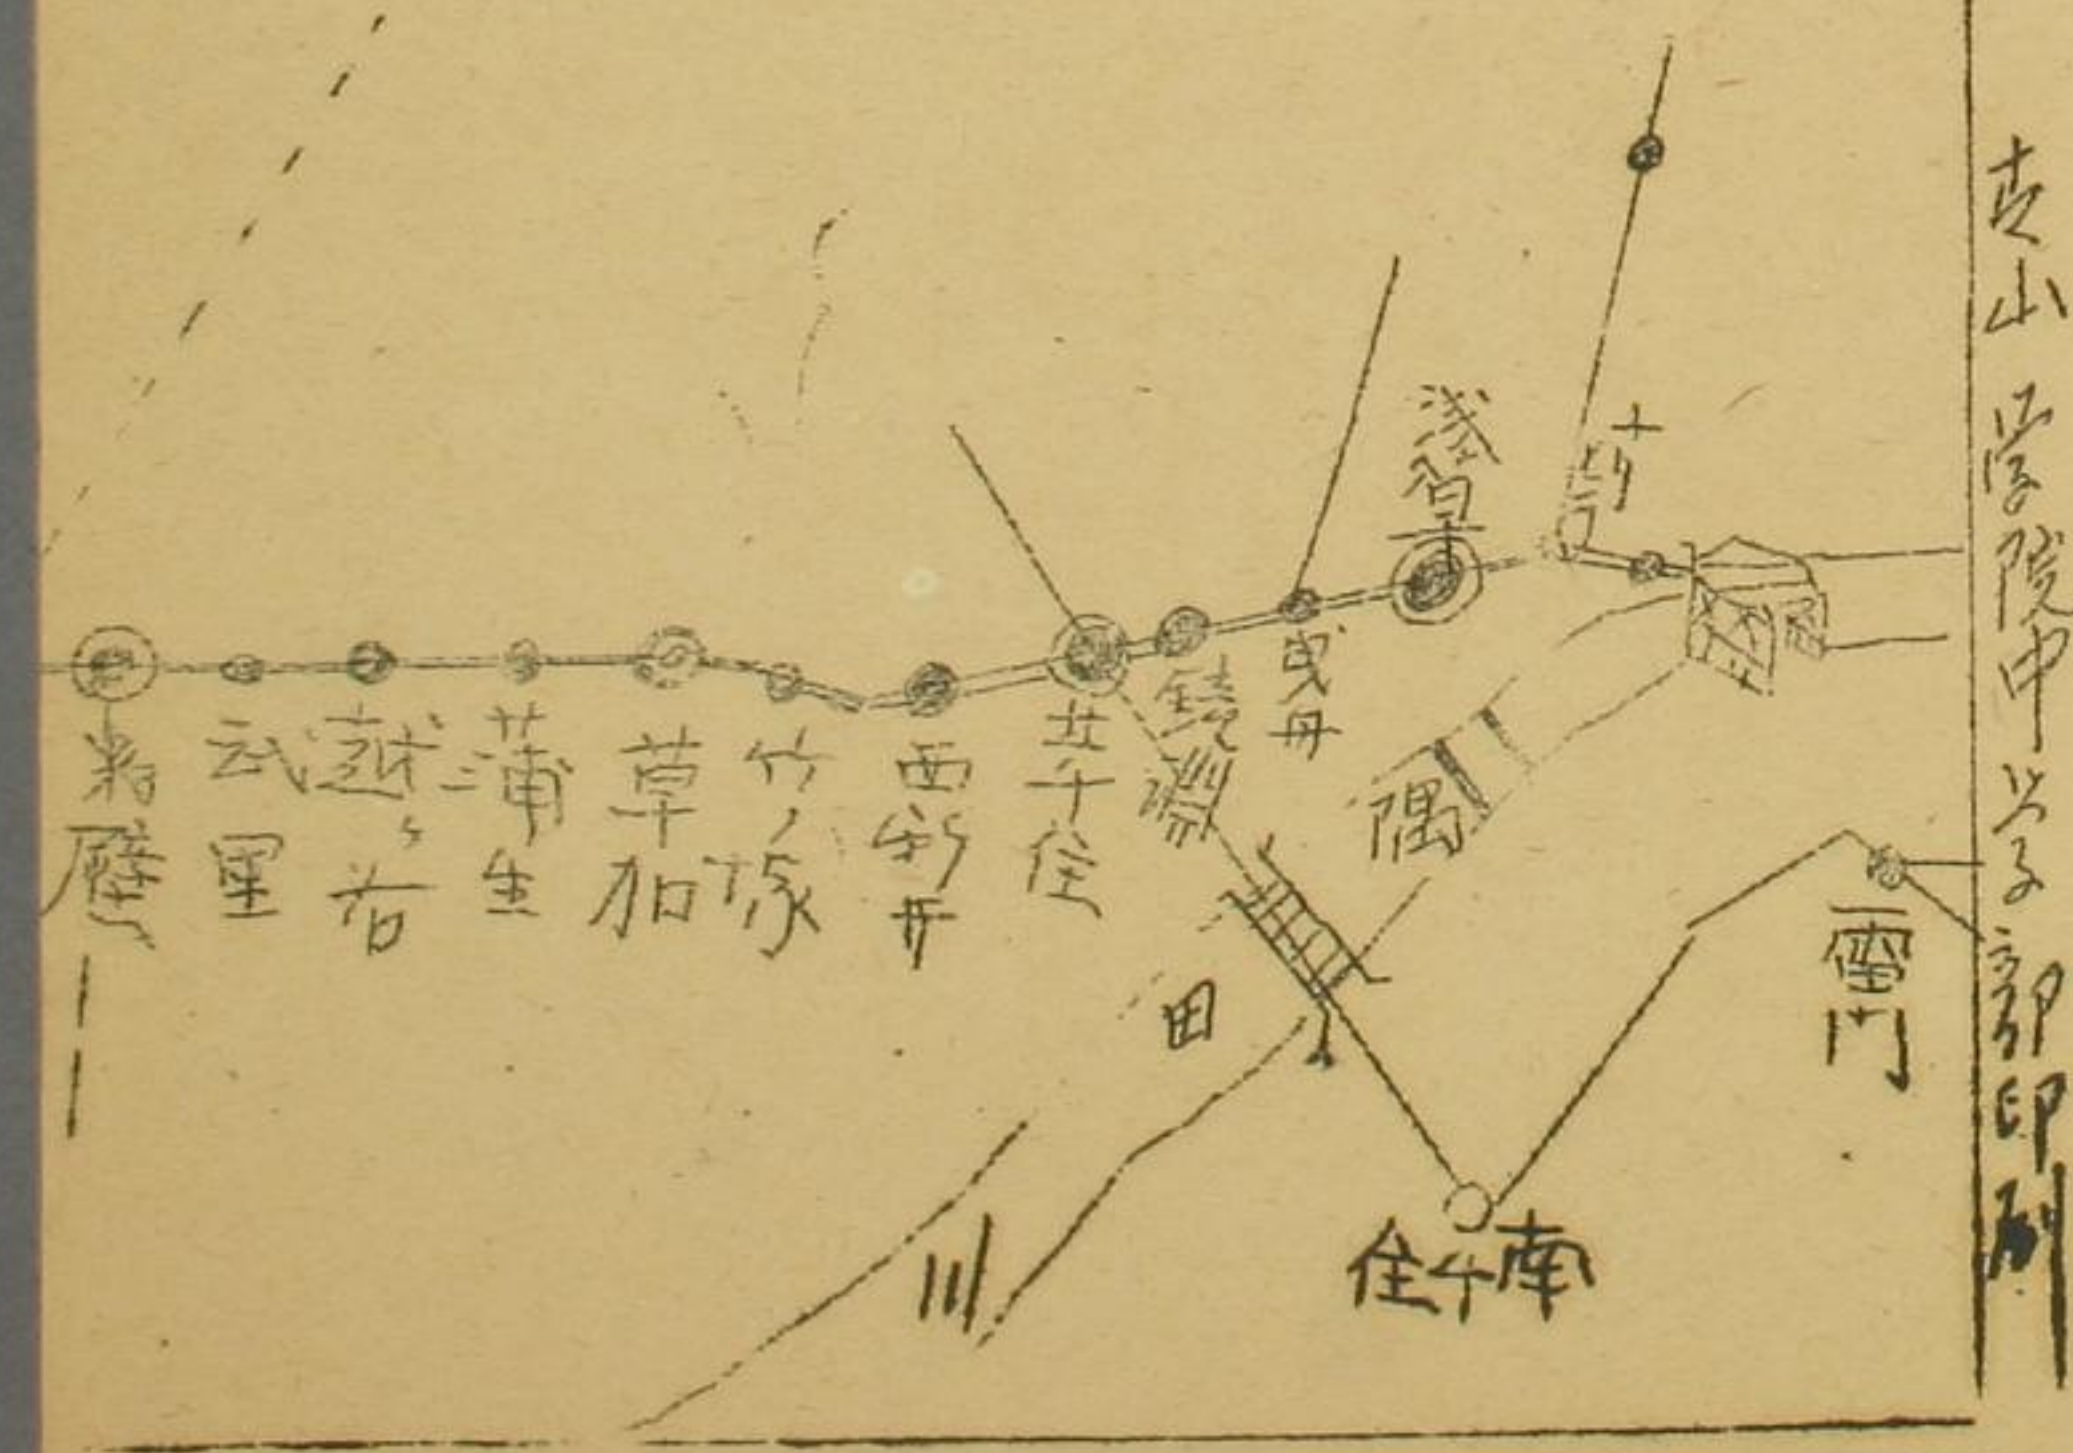 青山学院中学部印刷
雷門
浅草
曳舟
鐘
北千住
西新井
竹ノ塚
草加
蒲生
越ヶ谷
武里
粕壁
隅田川
南千住